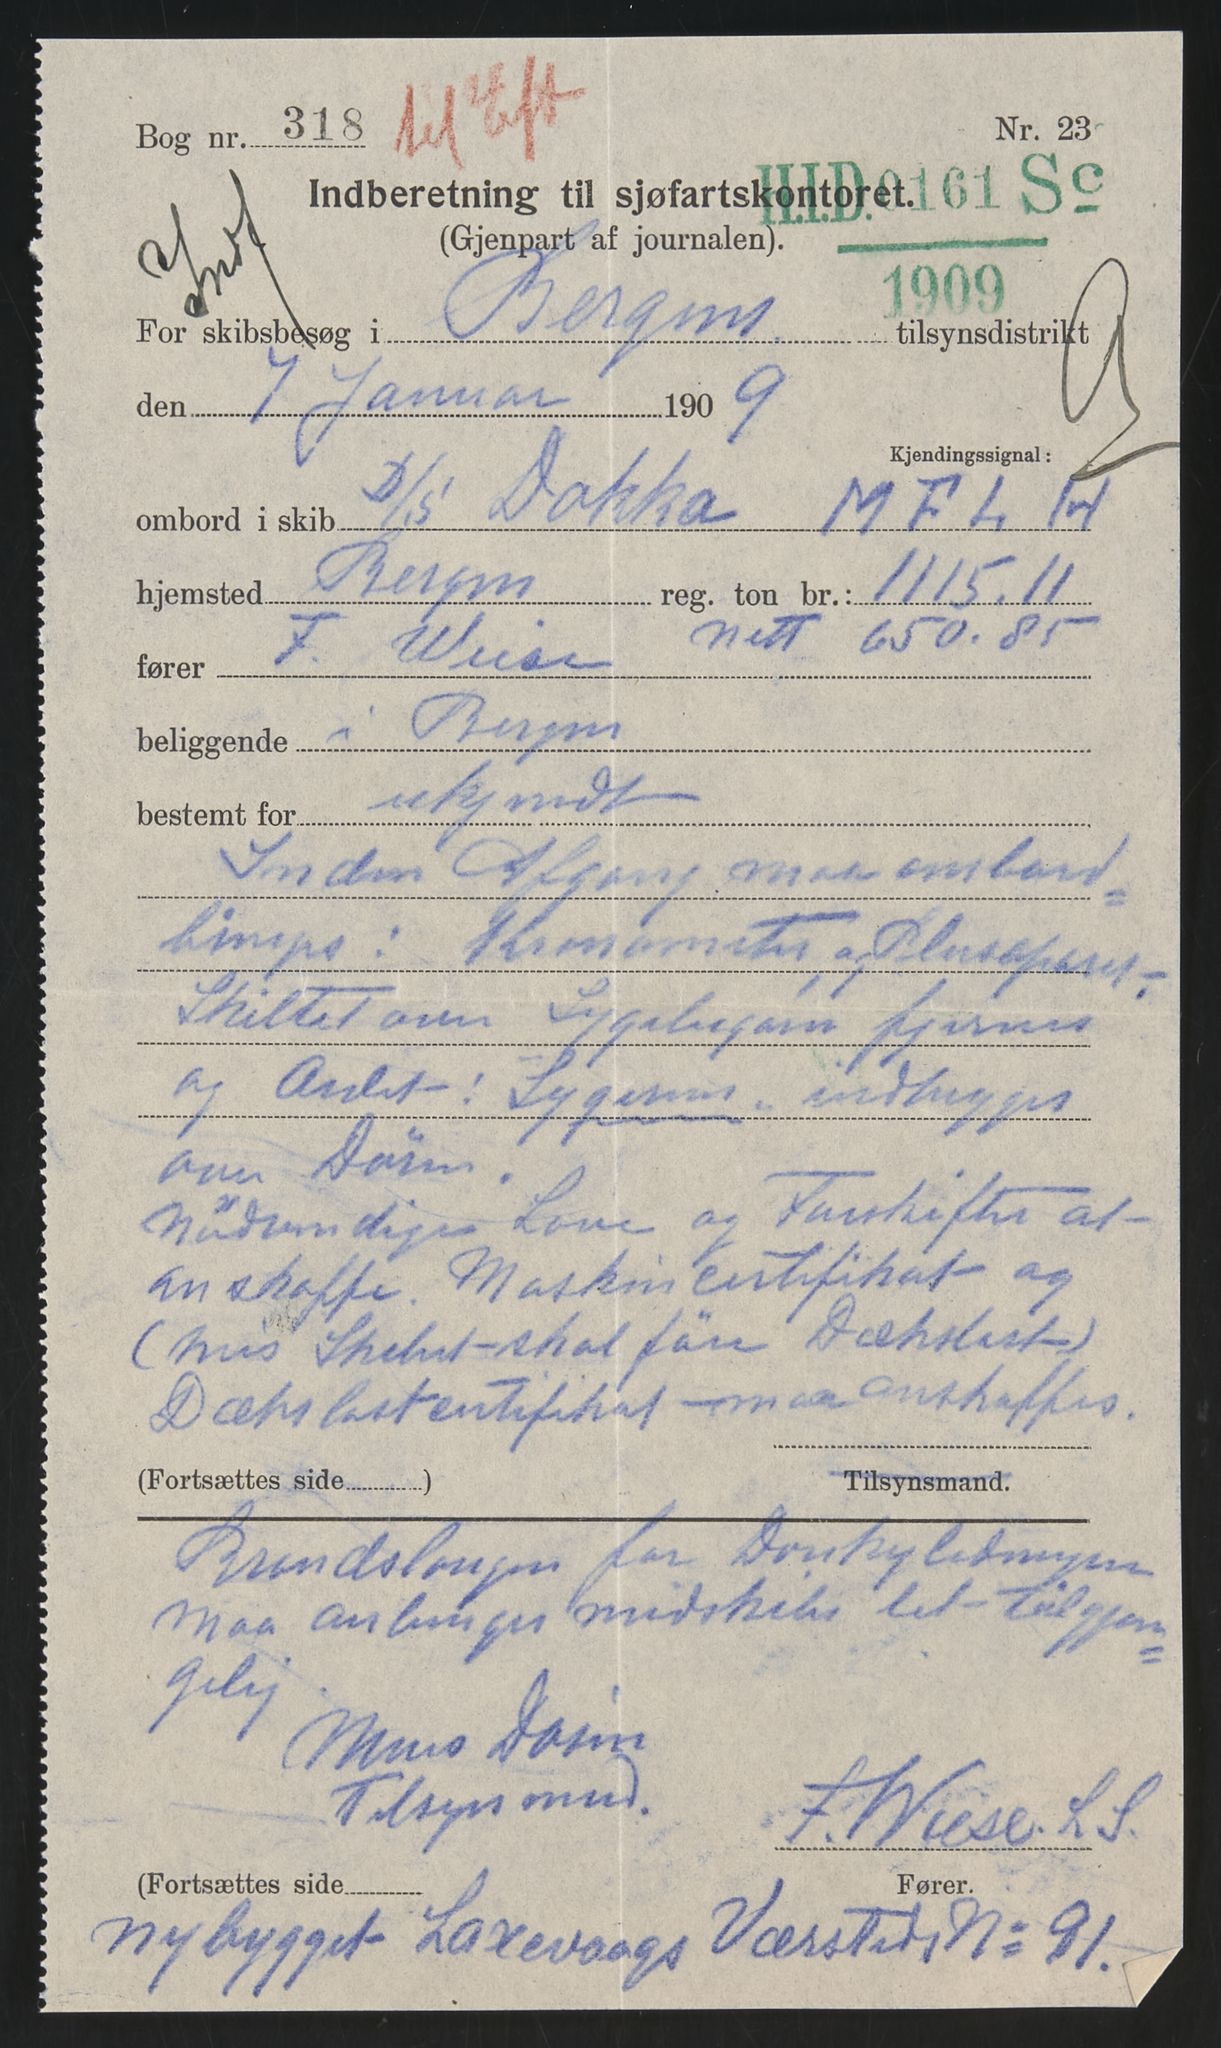 Bog nr. 318
Nr. 23
H.I.D. 0161 Sc
1909
Indberetning til sjøfartskontoret.
(Gjenpart af journalen).
For skibsbesøg i Bergens tilsynsdistrikt
den 7 Januar 1909
Kjendingssignal:
ombord i skib D/S Dokka M F L H
hjemsted Bergen reg. ton br.: 1115.11
Nett 650.85
fører F. Wiese
beliggende i Bergen
bestemt for ukjendt
Inden Afgang maa ombord=
bringes: Kronometer og
Skiltet over fjernes
og Andet: Lugerum indhugges
over Dören.
Nödvendige Love og Forskrifter at
anskaffe. Maskincertifikat og
(hvis Skibet skal före Dækslast)
Dækslastcertifikat maa anskaffes.
(Fortsættes side )
Tilsynsmand.
Brandslangen for Donkyledningen
maa anbringes midskibs let tilgjæn=
gelig.
Tilsynsmand.
F. Wiese. L.S.
(Fortsættes side
Fører.
nybygget Laxevaags Værsted, No 91.